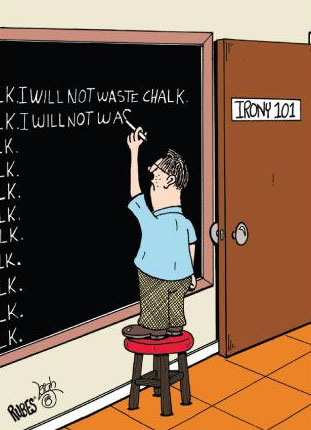 LK. I WILL NOT WASTE CHALK.
LK. I WILL NOT WAS
LK.
LK.
LK.
LK.
LK.
LK.
LK.
LK.
LK.
LK.
IRONY 101
RUBES
Leigh